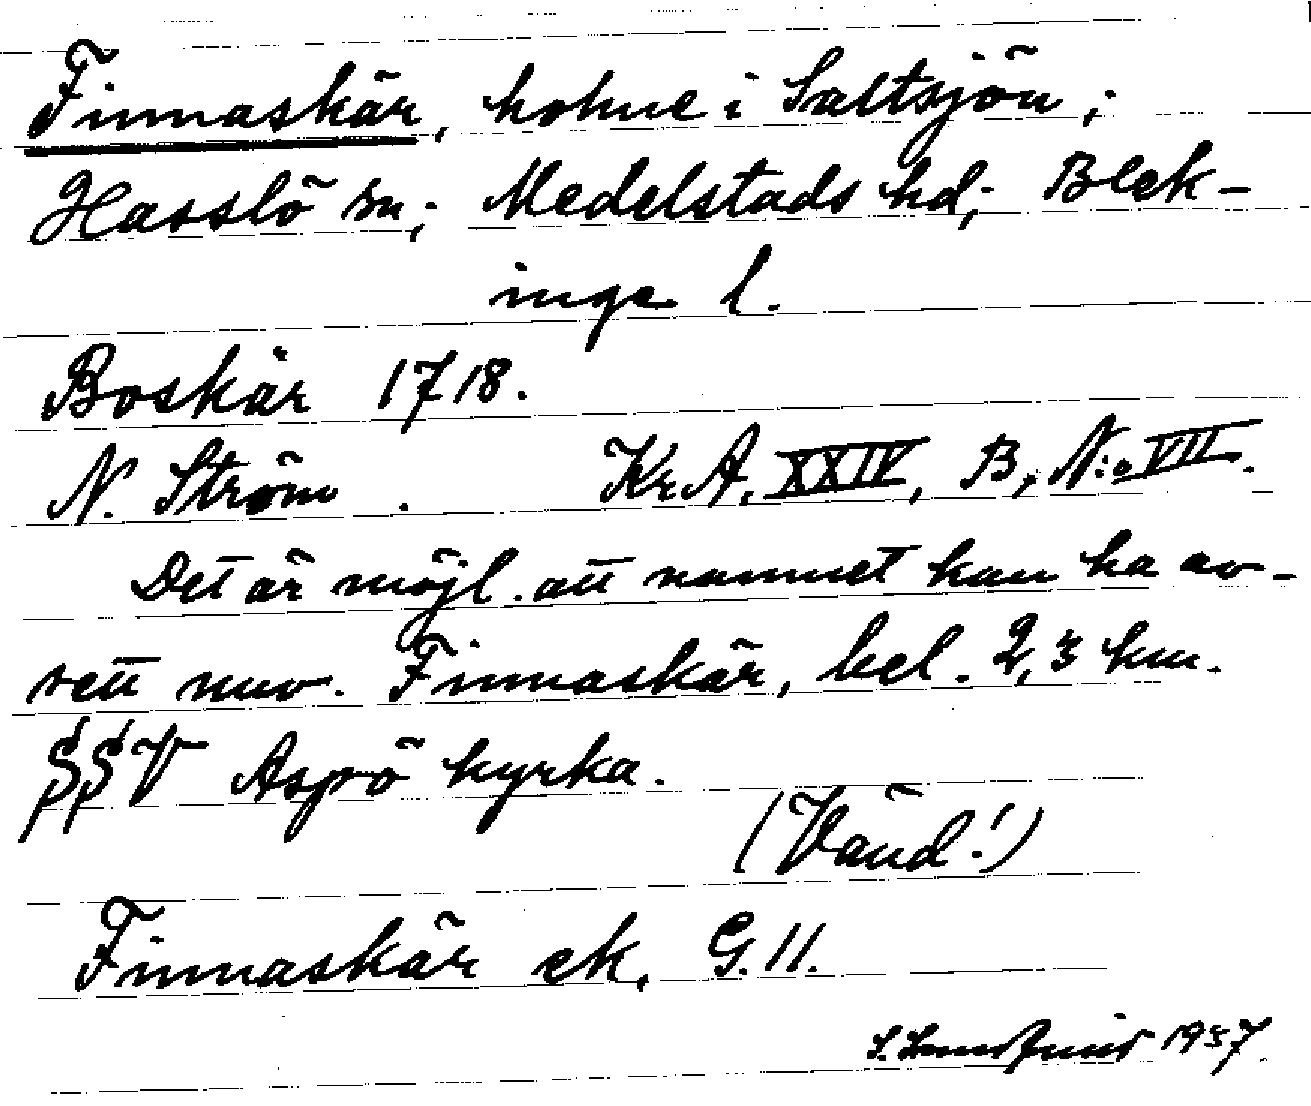 Finnaskär, holme i Saltsjön;
Hasslö sn; Medelstads hd; Blek-
inge l.
Boskär 1718.
N. Ström. Kr.A. XXIV, B, N:o VII.
Det är möjl. att namnet kan ha av-
sett nuv. Finnaskär, bel. 2,3 km.
SSV Aspö kyrka.
(Vänd!)
Finnaskär ek. G.11.
S. 1957